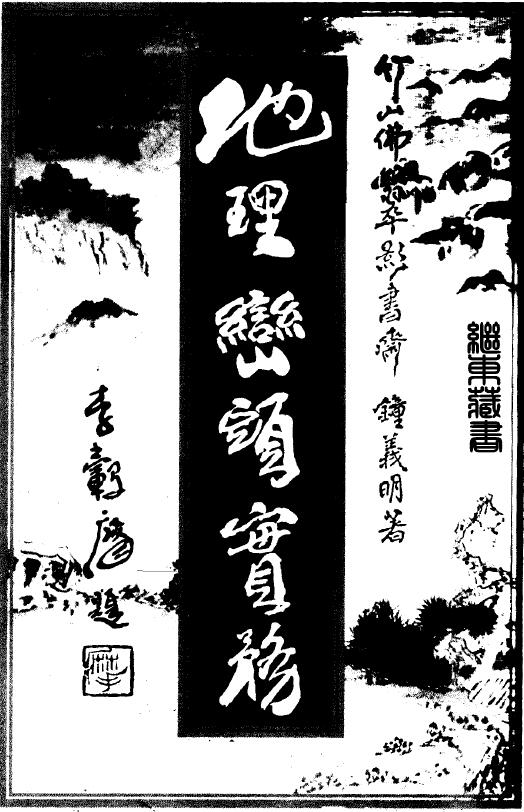 繼東藏書
竹山佛影書齋 鐘義明著
地理巒頭實務
李轂摩題